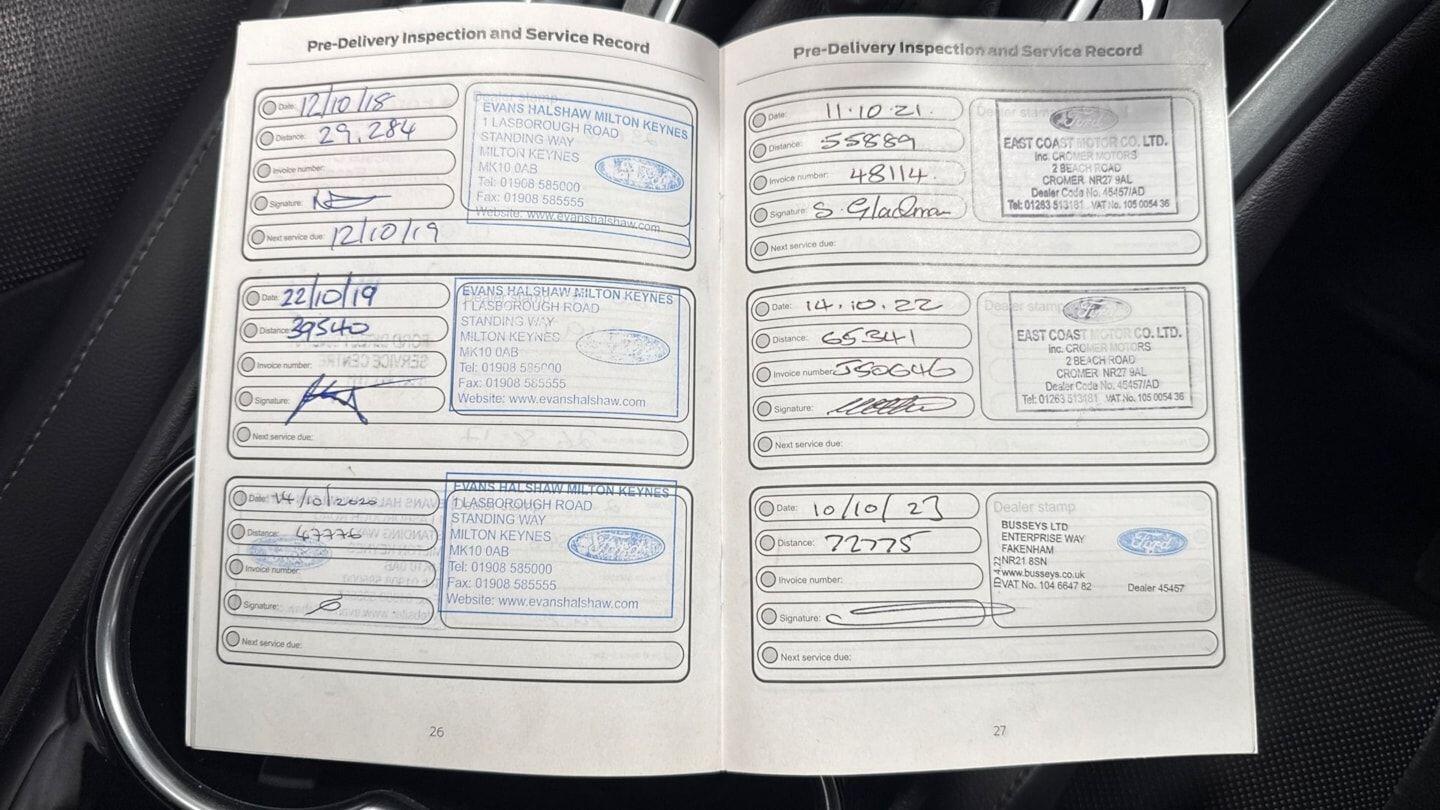 Pre-Delivery Inspection and Service Record
Date: 12/10/18
Distance: 29,284
Invoice number:
Signature:
Next service due: 12/10/19
EVANS HALSHAW MILTON KEYNES
1 LASBOROUGH ROAD
STANDING WAY
MILTON KEYNES
MK10 0AB
Tel: 01908 585000
Fax: 01908 585555
Website: www.evanshalshaw.com
Ford
Date: 22/10/19
Distance: 39540
Invoice number:
Signature:
Next service due:
EVANS HALSHAW MILTON KEYNES
1 LASBOROUGH ROAD
STANDING WAY
MILTON KEYNES
MK10 0AB
Tel: 01908 585000
Fax: 01908 585555
Website: www.evanshalshaw.com
Date: 14/10/2020
Distance: 47776
Invoice number:
Signature:
Next service due:
EVANS HALSHAW MILTON KEYNES
1 LASBOROUGH ROAD
STANDING WAY
MILTON KEYNES
MK10 0AB
Tel: 01908 585000
Fax: 01908 585555
Website: www.evanshalshaw.com
Ford
26
Pre-Delivery Inspection and Service Record
Date: 11.10.21.
Distance: 55889
Invoice number: 48114.
Signature: S. Gladman
Next service due:
Dealer stamp
Ford
EAST COAST MOTOR CO. LTD.
inc. CROMER MOTORS
2 BEACH ROAD
CROMER NR27 9AL
Dealer Code No. 45457/AD
Tel: 01263 513181 VAT No. 105 0054 36
Date: 14.10.22
Distance: 65341
Invoice number: J50646
Signature:
Next service due:
Dealer stamp
Ford
EAST COAST MOTOR CO. LTD.
inc. CROMER MOTORS
2 BEACH ROAD
CROMER NR27 9AL
Dealer Code No. 45457/AD
Tel: 01263 513181 VAT No. 105 0054 36
Date: 10/10/23
Distance: 72775
Invoice number:
Signature:
Next service due:
Dealer stamp
BUSSEYS LTD
ENTERPRISE WAY
FAKENHAM
NR21 8SN
www.busseys.co.uk
VAT No. 104 6647 82
Dealer 45457
Ford
27